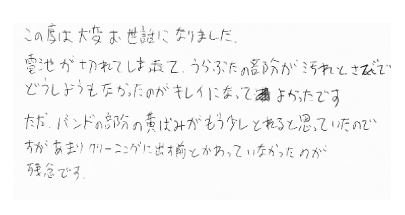 この度は大変お世話になりました。
電池が切れてしまって、うらぶたの部分が汚れとさびで
どうしようもなかったのがキレイになってよかったです
ただ、バンドの部分の黄ばみがもう少しとれると思っていたので
すが あまり クリーニングに出す前とかわっていなかったのが
残念です。